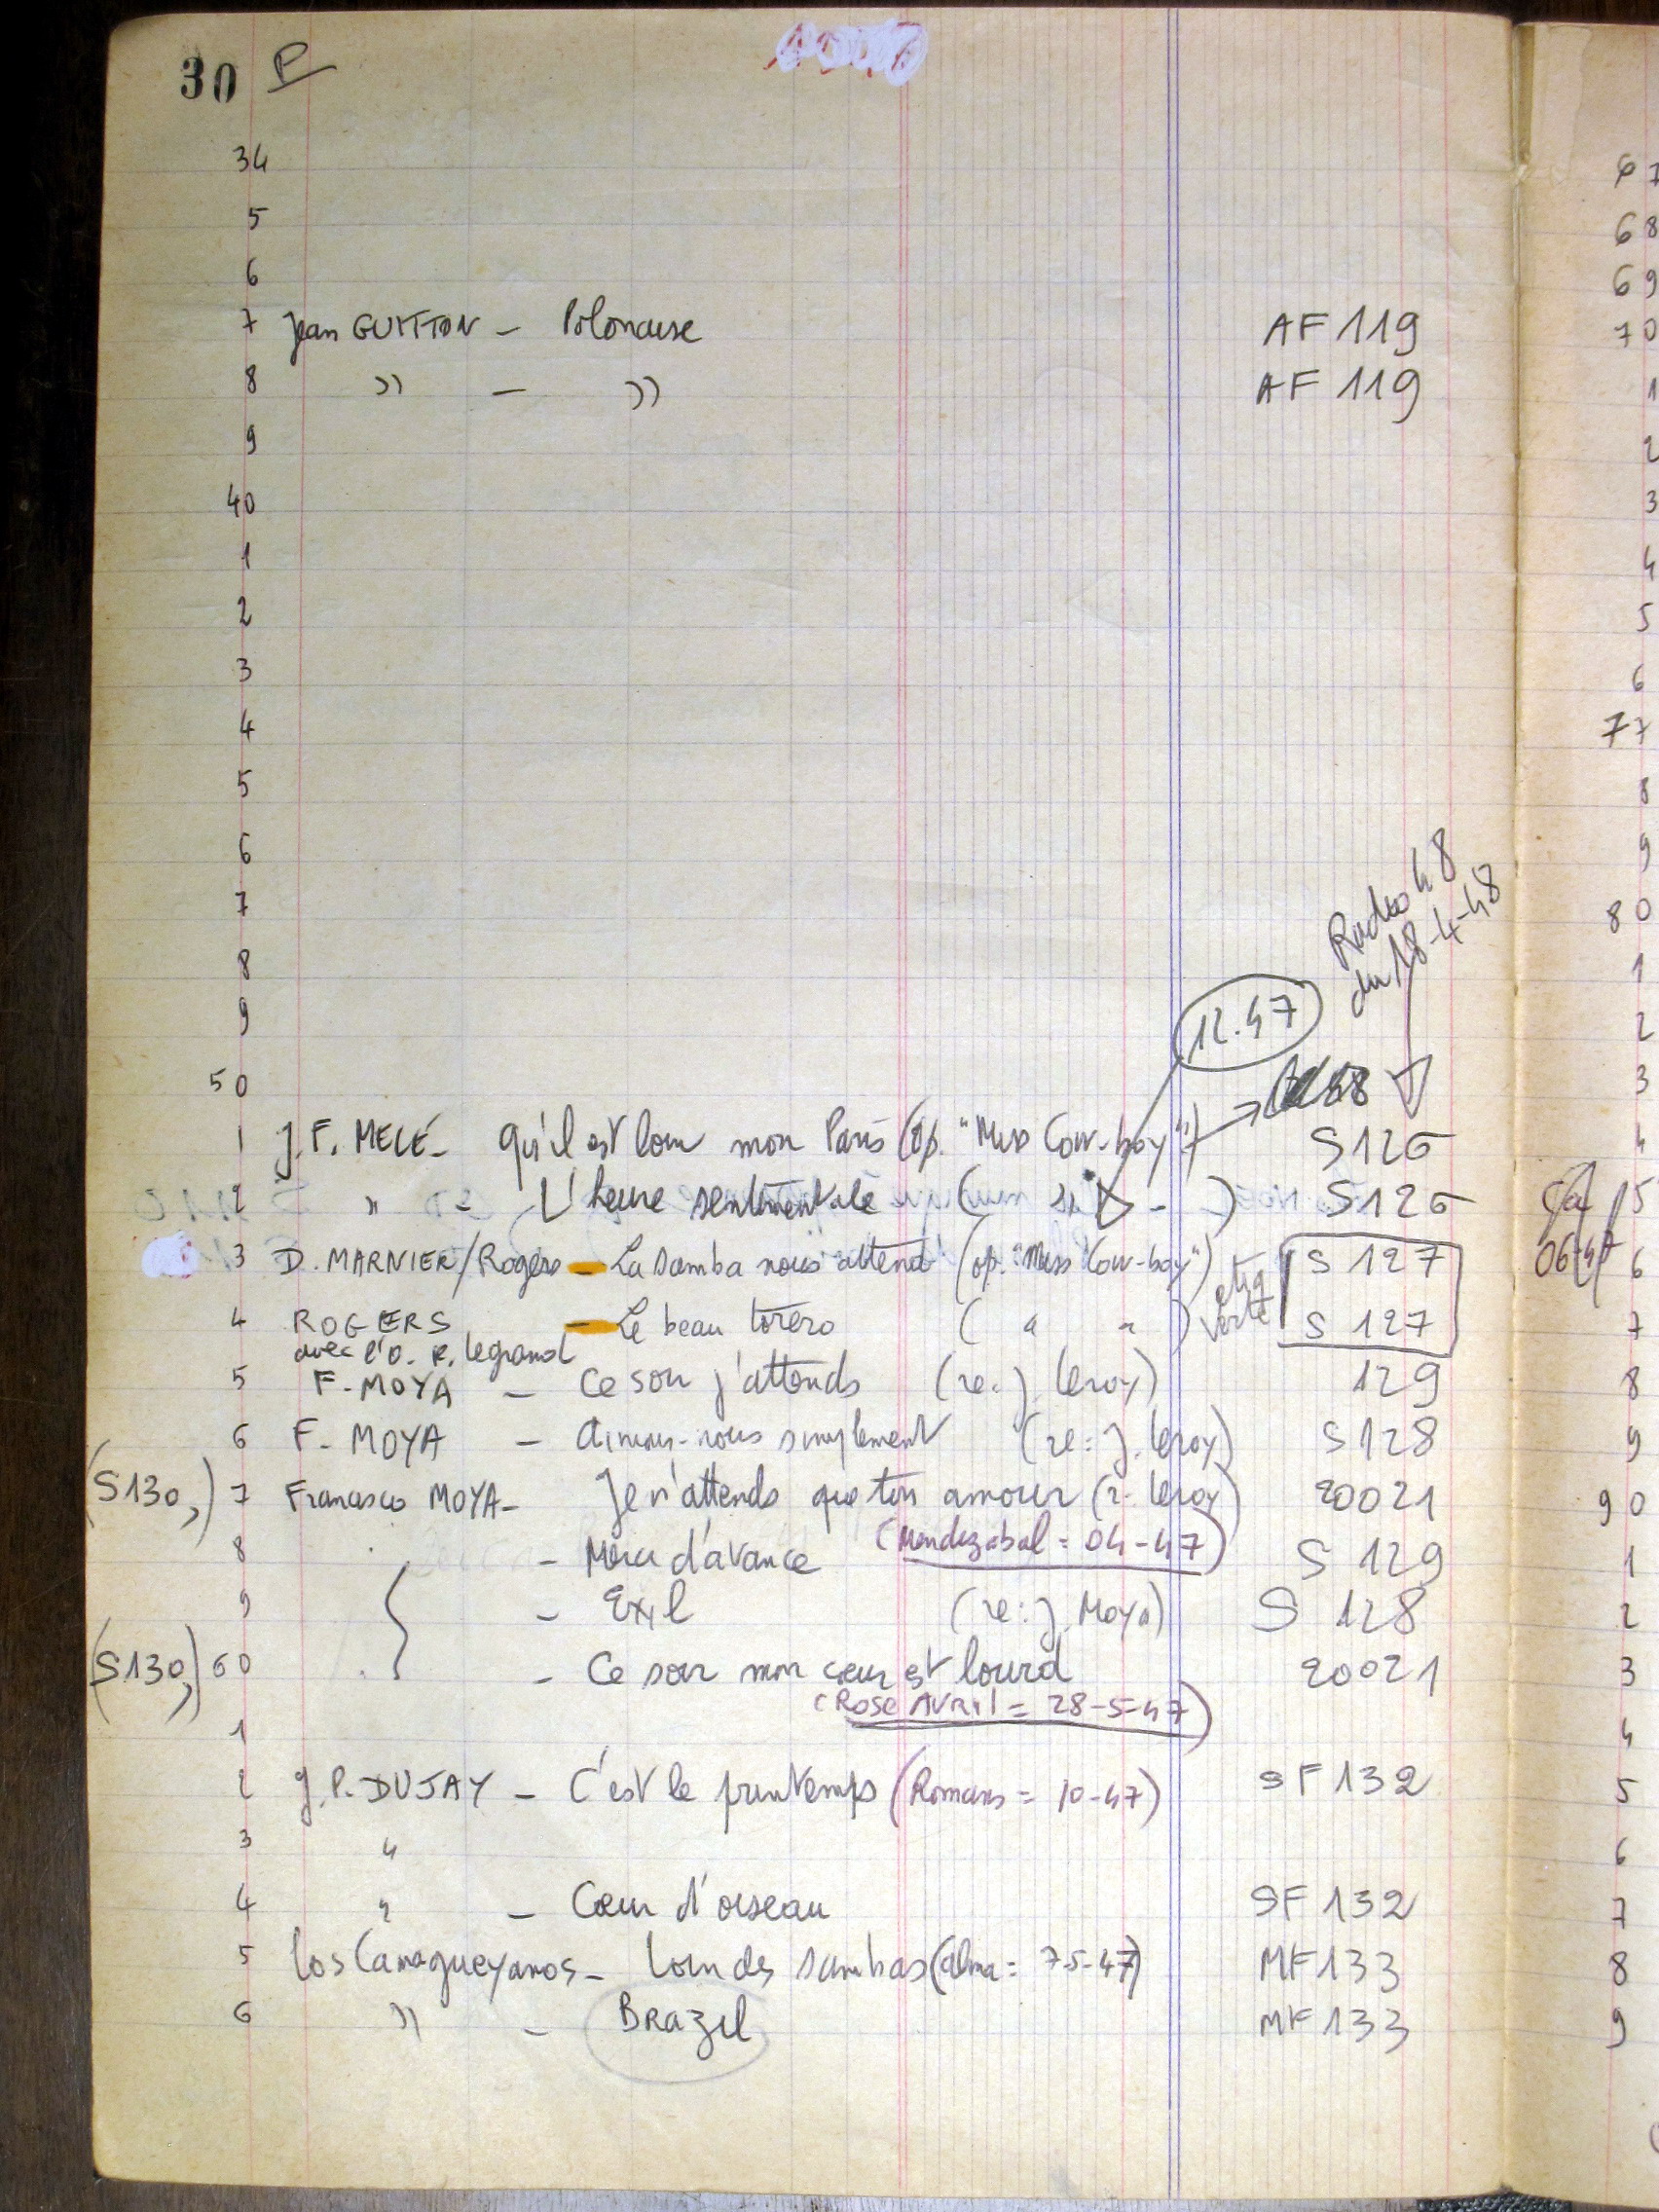 30 P
34
5
6
7 Jean GUITTON - Polonaise AF 119
8 " - " AF 119
9
40
1
2
3
4
5
6
7
8
9
Radio 48
du 18-4-48
12.47
50
1 J.F. MELÉ - Qu'il est loin mon Paris (op. "Miss Cow-boy") S126
2 " - L'heure sentimentale ( " - ) S126
3 D. MARNIER/Rogers - La samba nous attend (op. "Miss Cow-boy") S 127
etiq verte
4 ROGERS - Le beau torero ( " " ) S 127
avec l'O. R. Legrand
5 F. MOYA - Ce soir j'attends (re: J. Leroy) 129
6 F. MOYA - Aimons-nous simplement (re: J. Leroy) S128
(S130,) 7 Francisco MOYA - Je n'attends que ton amour (r. Leroy) 20021
(Mendizabal = 04-47)
8 - Merci d'avance S 129
9 - Exil (re: J. Moya) S 128
(S130,) 60 - Ce soir mon cœur est lourd 20021
(Rose AVRIL = 28-5-47)
1
2 J.P. DUJAY - C'est le printemps (Romans = 10-47) SF 132
3 "
4 " - Cœur d'oiseau SF 132
5 Los Camagueyanos - Loin des sambas (alma = 7-5-47) MF 133
6 " - BRAZIL MF 133
67
68
69
70
1
2
3
4
5
6
77
8
9
80
1
2
3
4
5
06-47 6
7
8
9
90
1
2
3
4
5
6
7
8
9